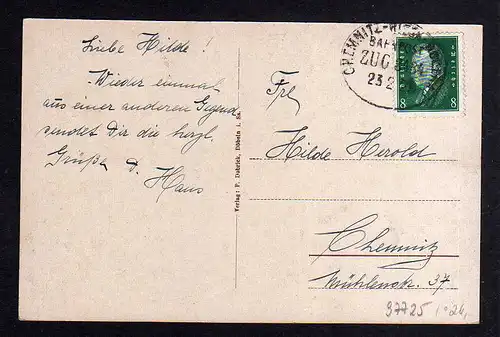 Liebe Hilde!
Wieder einmal
aus einer anderen Gegend
sendet Dir die herzl.
Grüße d.
Hans
Verlag: F. Dobrick, Döbeln i. Sa.
CHEMNITZ-
BAHN
ZUG
23 2
8 8
Frl
Hilde Herold
Chemnitz
Mühlenstr. 37
97725